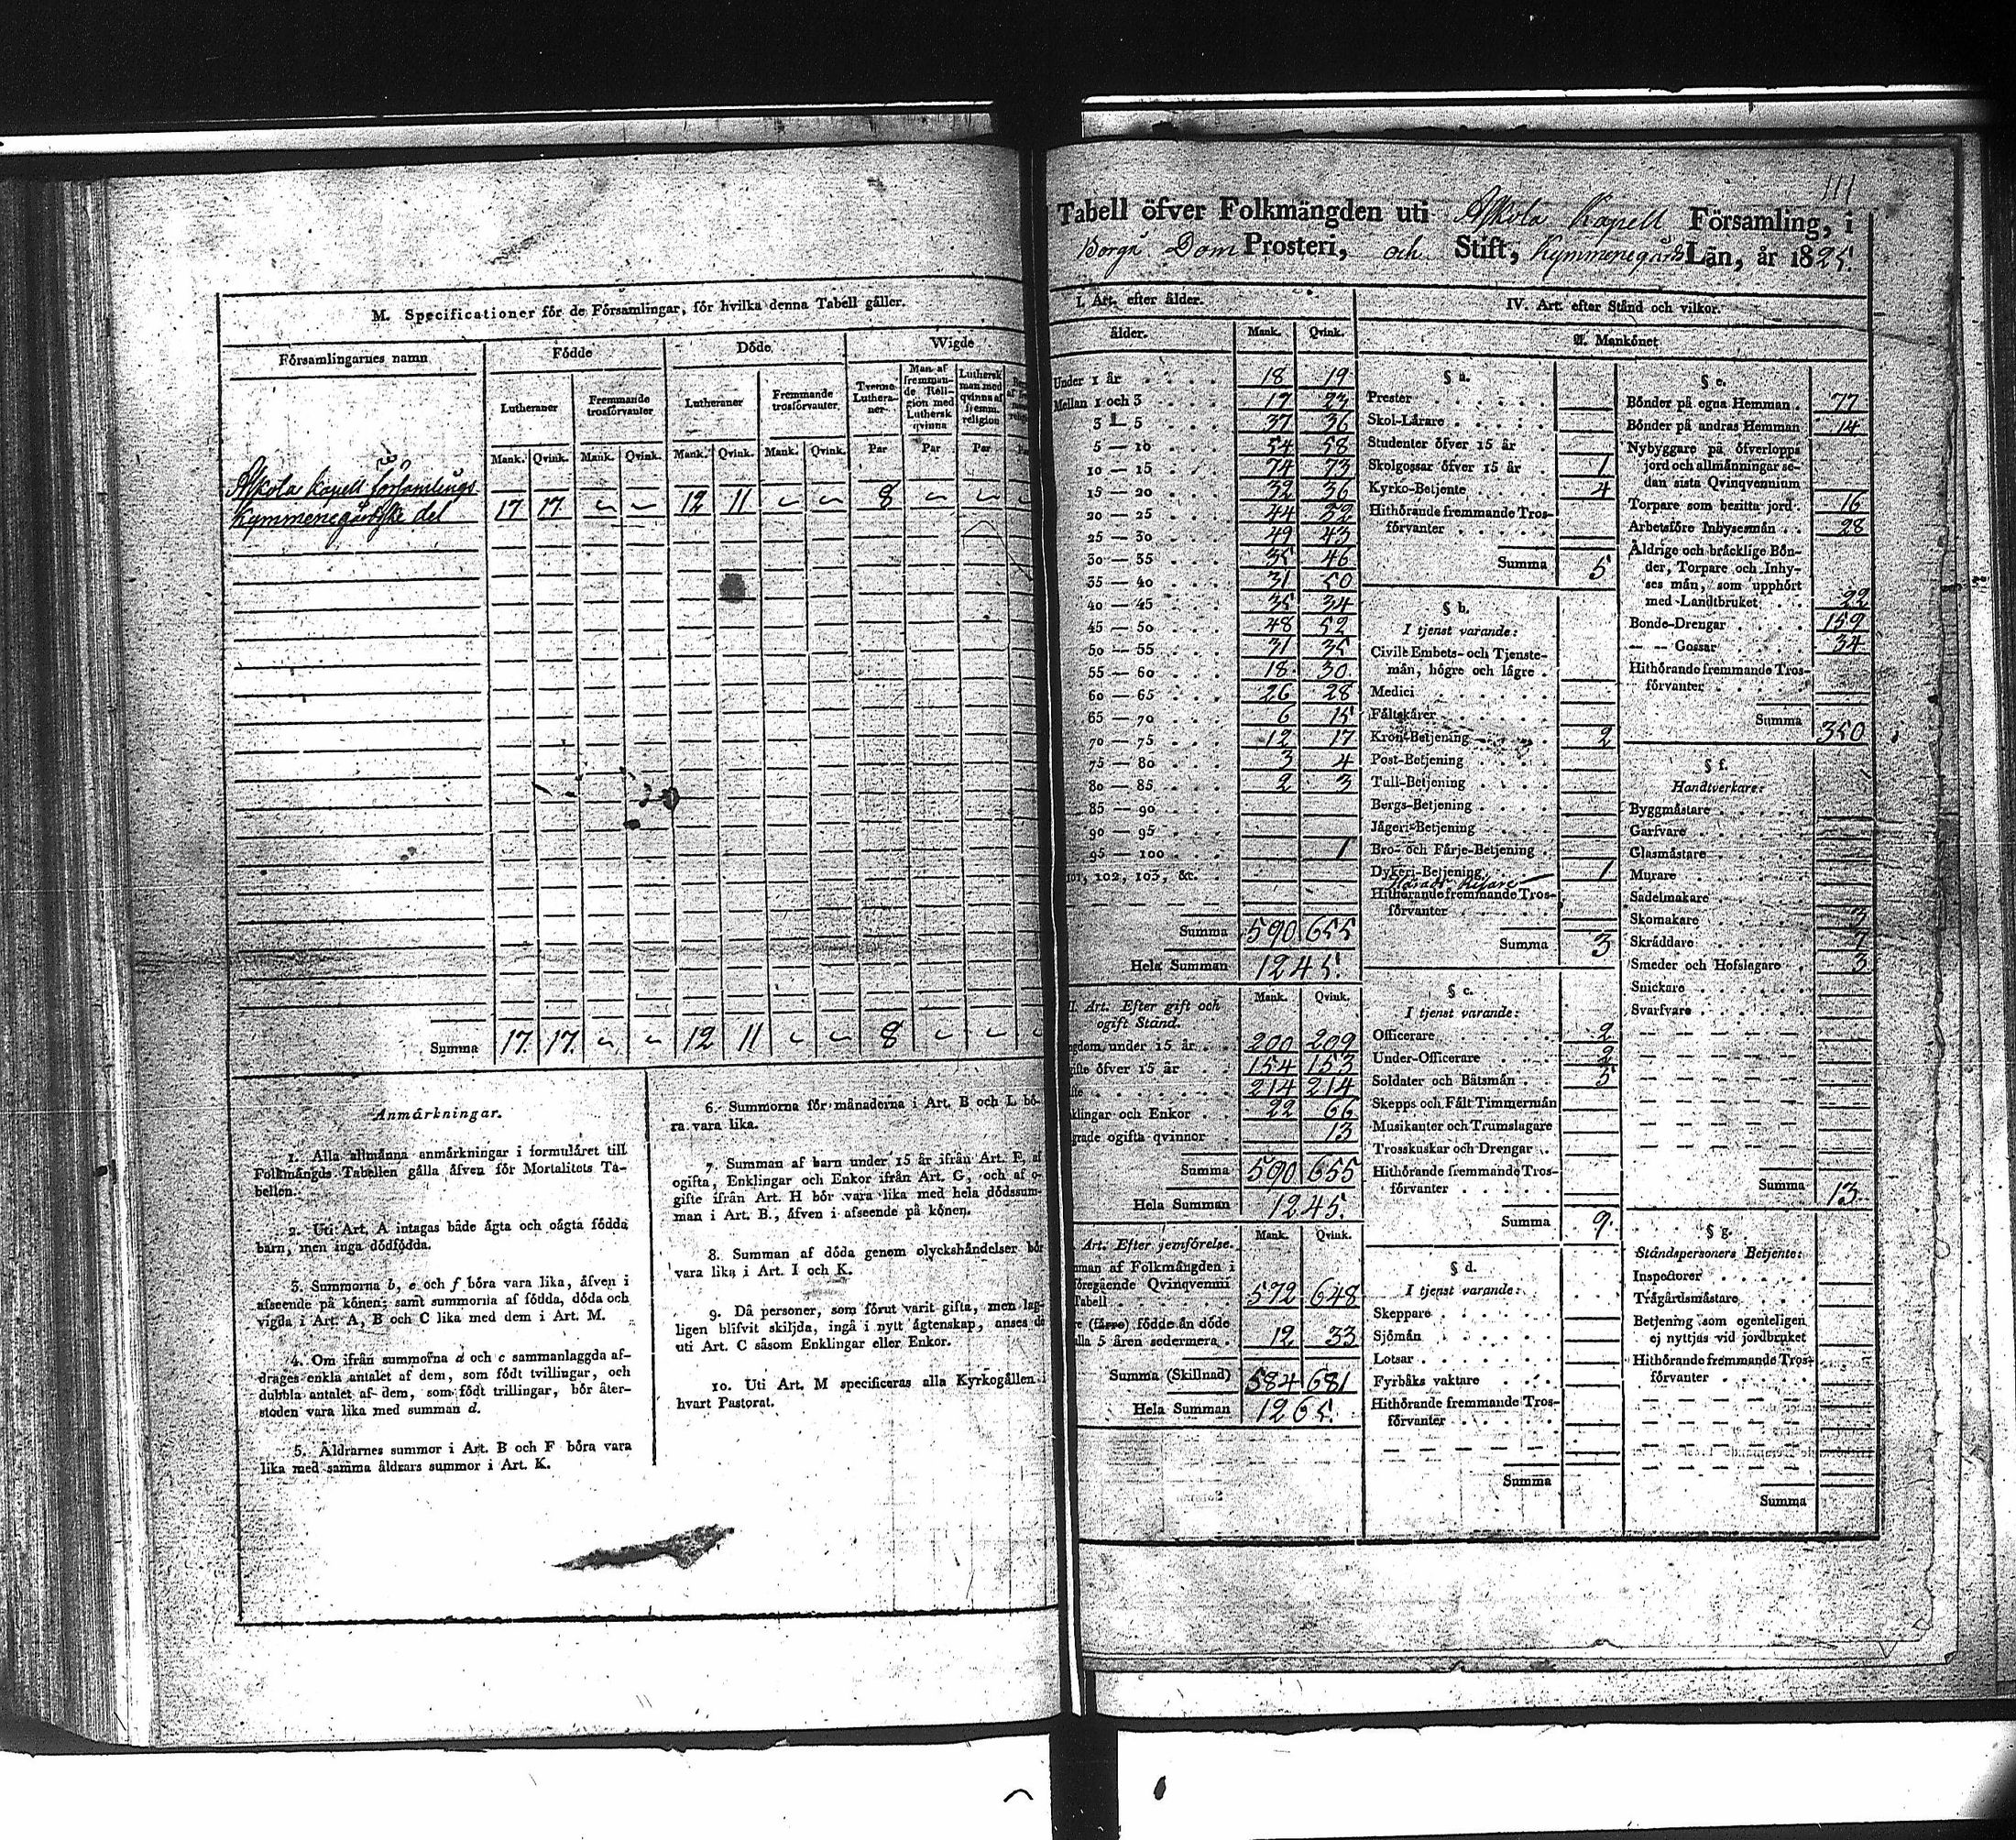 M. Specificationer för de Församlingar, för hvilka denna Tabell gäller.
Församlingarnes namn
Födde
Döde
Wigde
Lutheraner
Fremmande trosförvanter
Lutheraner
Fremmande trosförvanter.
Tvenne Lutheraner
Man af fremmande Religion med Luthersk qvinna
Luthersk man med qvinna af fremm. religion
Mank. Qvink. Mank. Qvink. Mank. Qvink. Mank. Qvink. Par Par Par
Askola Kapell församlings
Kymmenegårdske del 17 17 ~ ~ 12 11 ~ ~ 8 ~ ~ ~
Summa 17. 17. ~ ~ 12 11 ~ ~ 8 ~ ~ ~
Anmärkningar.
1. Alla allmänna anmärkningar i formuläret till
Folkmängds Tabellen gälla äfven för Mortalitets Ta-
bellen.
2. Uti Art. A intagas både ägta och oägta födda
barn, men inga dödfödda.
3. Summorna b, e och f böra vara lika, äfven i
afseende på könen; samt summorna af födda, döda och
vigda i Art. A, B och C lika med dem i Art. M.
4. Om ifrån summorna d och c sammanlaggda af-
drages enkla antalet af dem, som födt tvillingar, och
dubbla antalet af dem, som födt trillingar, bör åter-
stoden vara lika med summan d.
5. Åldrarnes summor i Art. B och F böra vara
lika med samma åldrars summor i Art. K.
6. Summorna för månaderna i Art. B och L bö-
ra vara lika.
7. Summan af barn under 15 år ifrån Art. F, af
ogifta, Enklingar och Enkor ifrån Art. G, och af o-
gifte ifrån Art. H bör vara lika med hela dödssum-
man i Art. B., äfven i afseende på könen.
8. Summan af döda genom olyckshändelser bör
vara lika i Art. I och K.
9. Då personer, som förut varit gifta, men lag-
ligen blifvit skiljda, ingå i nytt ägtenskap, anses de
uti Art. C såsom Enklingar eller Enkor.
10. Uti Art. M specificeras alla Kyrkogällen i
hvart Pastorat.
111
Tabell öfver Folkmängden uti Askola Kapell Församling, i
Borgå Dom Prosteri, och Stift, Kymmenegårds Län, år 1825.
I. Art. efter ålder.
ålder. Mank. Qvink.
Under 1 år 18 19
Mellan 1 och 3 17 23
3 — 5 37 36
5 — 10 54 58
10 — 15 74 73
15 — 20 32 36
20 — 25 44 32
25 — 30 49 43
30 — 35 35 46
35 — 40 31 50
40 — 45 35 34
45 — 50 48 52
50 — 55 31 35
55 — 60 18 30
60 — 65 26 28
65 — 70 6 15
70 — 75 12 17
75 — 80 3 4
80 — 85 2 3
85 — 90
90 — 95
95 — 100 1
101, 102, 103, &c.
Summa 590 655
Hela Summan 1245.
I. Art. Efter gift och Mank. Qvink.
ogift Stånd.
gdom under 15 år 200 209
gifte öfver 15 år 154 153
fte 214 214
klingar och Enkor 22 66
grade ogifta qvinnor 13
Summa 590 655
Hela Summan 1245.
Art. Efter jemförelse. Mank. Qvink.
man af Folkmängden i
föregående Qvinqvennii
Tabell 572 648
re (färre) födde än döde
alla 5 åren sedermera 12 33
Summa (Skillnad) 584 681
Hela Summan 1265.
IV. Art. efter Stånd och vilkor.
A. Mankönet
§ a.
Prester
Skol-Lärare
Studenter öfver 15 år
Skolgossar öfver 15 år 1
Kyrko-Betjente 4
Hithörande fremmande Tros-
förvanter
Summa 5
§ b.
I tjenst varande:
Civile Embets- och Tjenste-
män, högre och lägre
Medici
Fältskärer
Krono-Betjening 2
Post-Betjening
Tull-Betjening
Bergs-Betjening
Jägeri-Betjening
Bro- och Färje-Betjening
Dykeri-Betjening 1
Hithörande fremmande Tros-
förvanter
Summa 3
§ c.
I tjenst varande:
Officerare 2
Under-Officerare 2
Soldater och Båtsmän 5
Skepps och Fält Timmermän
Musikanter och Trumslagare
Trosskuskar och Drengar
Hithörande fremmande Tros-
förvanter
Summa 9.
§ d.
I tjenst varande:
Skeppare
Sjömän
Lotsar
Fyrbåks vaktare
Hithörande fremmande Tros-
förvanter
Summa
§ e.
Bönder på egna Hemman 77
Bönder på andras Hemman 14
Nybyggare på öfverlopps
jord och allmänningar se-
dan sista Qvinqvennium
Torpare som besitta jord 16
Arbetsföre Inhysesmän 28
Åldrige och bräcklige Bön-
der, Torpare och Inhy-
ses män, som upphört
med Landtbruket 22
Bonde-Drengar 159
— — Gossar 34
Hithörande fremmande Tros-
förvanter
Summa 350
§ f.
Handtverkare:
Byggmästare
Garfvare
Glasmästare
Murare
Sadelmakare
Skomakare 3
Skräddare 7
Smeder och Hofslagare 3
Snickare
Svarfvare
Summa 13.
§ g.
Ståndspersoners Betjente:
Inspectorer
Trägårdsmästare
Betjening som egenteligen
ej nyttjas vid jordbruket
Hithörande fremmande Tros-
förvanter
Summa